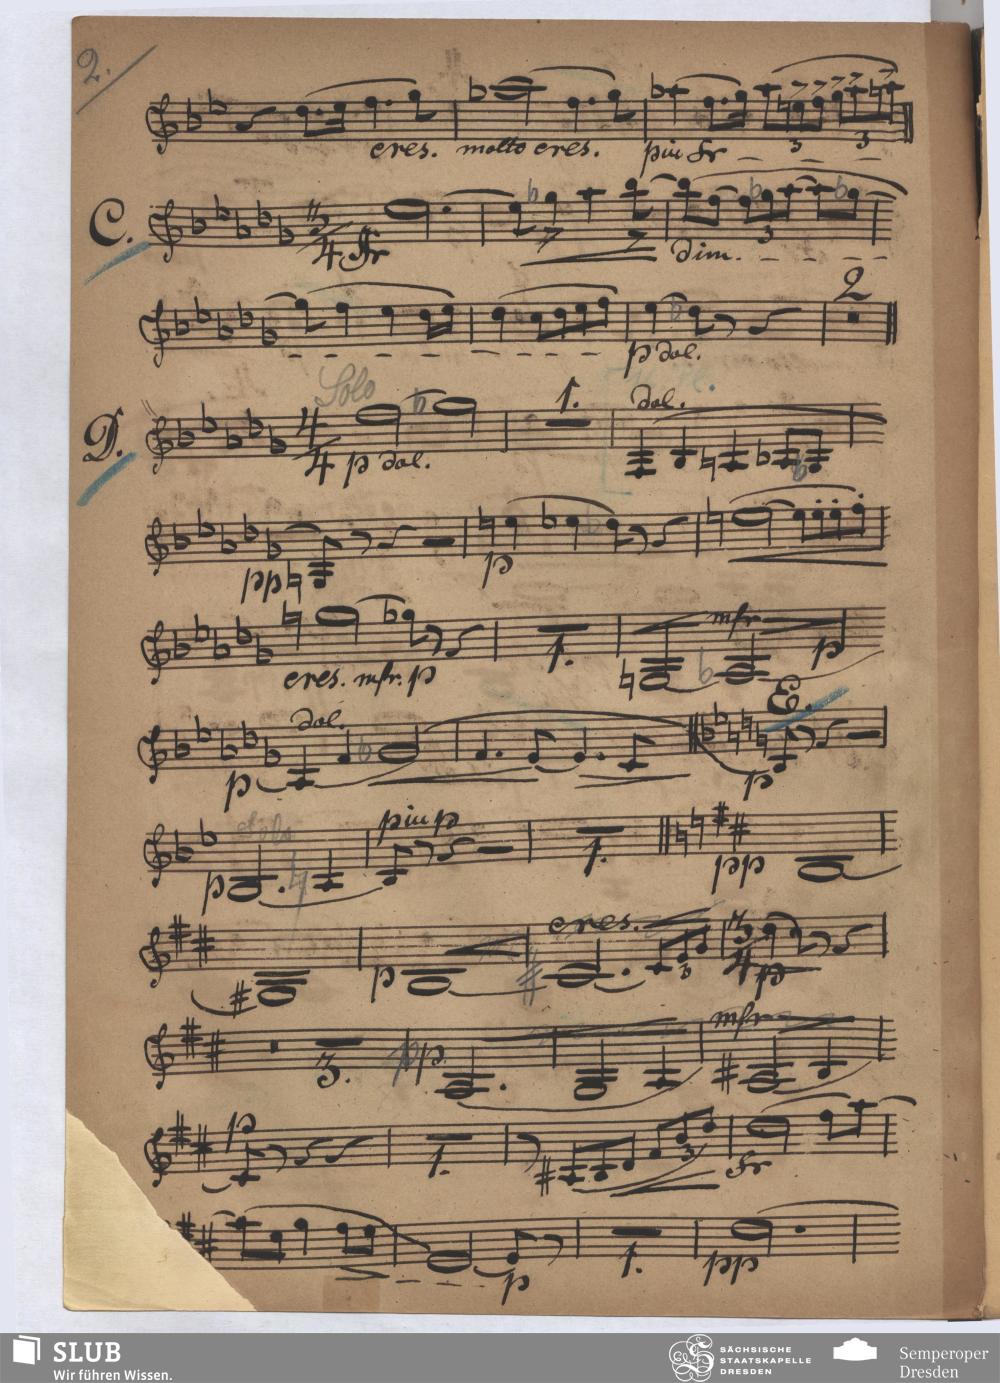 2.
cres. molto cres. piu fr
3 3
C. 3/4 fr 3 dim.
2
p dol.
Solo 1. dol.
D. 4/4 p dol.
pp p
mfr
cres. mfr. p 1. p
E.
dol.
p p
piu p
p 1. pp
cres. 3
p 3/4 p
mfr
3. pp
p
1. 3 fr
p 1. pp
SLUB
Wir führen Wissen.
SÄCHSISCHE
STAATSKAPELLE
DRESDEN
Semperoper
Dresden